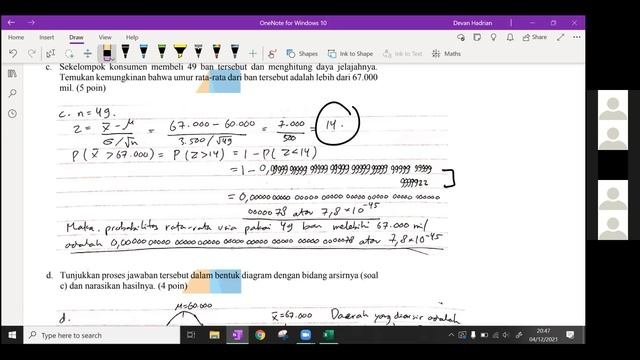 OneNote for Windows 10
Devan Hadrian
Home Insert Draw View Help
Shapes Ink to Shape Ink to Text Maths
c. Sekelompok konsumen membeli 49 ban tersebut dan menghitung daya jelajahnya.
Temukan kemungkinan bahwa umur rata-rata dari ban tersebut adalah lebih dari 67.000
mil. (5 poin)
c. n=49.
z = x̄ - μ / σ/√n = 67.000 - 60.000 / 3.500/√49 = 7.000 / 500 = 14.
P(x̄ > 67.000) = P(z>14) = 1 - P(z<14)
= 1 - 0,99999 99999 99999 99999 99999 99999 99999 99999
9999922
= 0,00000 00000 00000 00000 00000 00000 00000
0000078 atau 7,8 × 10⁻⁴⁵
Maka, probabilitas rata-rata usia pakai 49 ban melebihi 67.000 mil
adalah 0,00000 00000 00000 00000 00000 00000 00000 0000078 atau 7,8×10⁻⁴⁵
d. Tunjukkan proses jawaban tersebut dalam bentuk diagram dengan bidang arsirnya (soal
c) dan narasikan hasilnya. (4 poin)
d. μ=60.000 x̄=67.000 Daerah yang diarsir adalah
Type here to search
20:47
04/12/2021